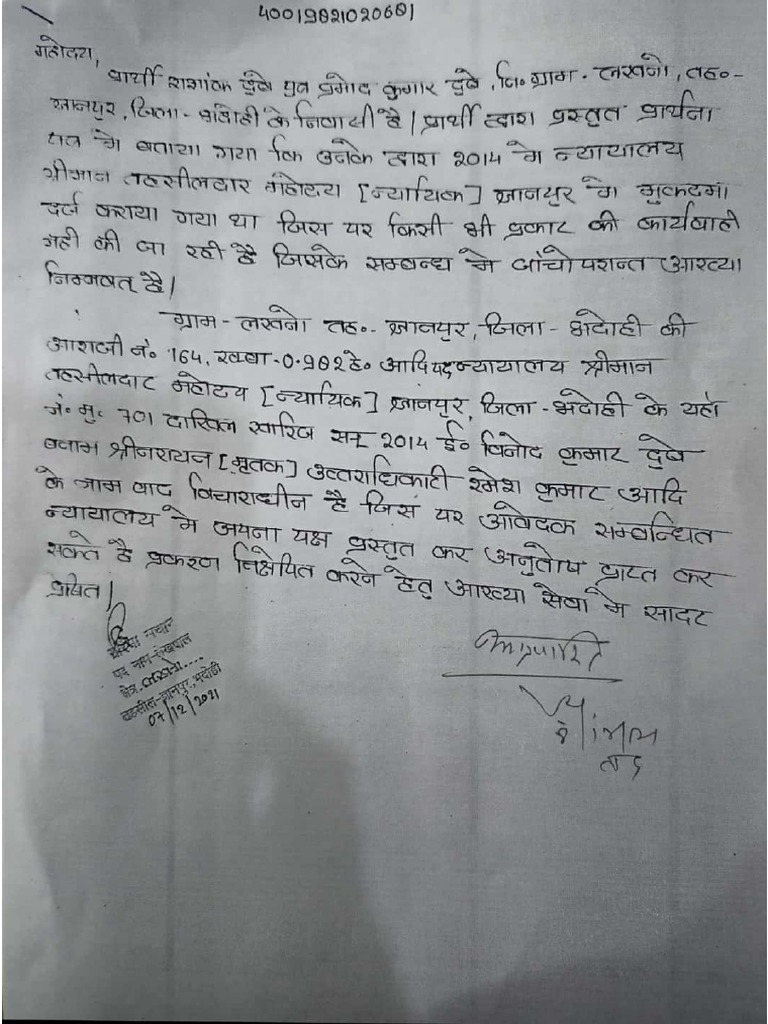 40019821020681
महोदय,
प्रार्थी शशांक दुबे पुत्र प्रमोद कुमार दुबे, नि० ग्राम - लखनो, तह०-
ज्ञानपुर, जिला - भदोही के निवासी है। प्रार्थी द्वारा प्रस्तुत प्रार्थना
पत्र मे बताया गया कि उनके द्वारा 2014 मे न्यायालय
श्रीमान तहसीलदार महोदय [न्यायिक] ज्ञानपुर मे मुकदमा
दर्ज कराया गया था जिस पर किसी भी प्रकार की कार्यवाही
नही की जा रही है जिसके सम्बन्ध मे जांचोपरान्त आख्या
निम्नवत् है।
ग्राम - लखनो तह०- ज्ञानपुर, जिला - भदोही की
आराजी नं० 164, रकबा -0.982हे० आदि पर न्यायालय श्रीमान
तहसीलदार महोदय [न्यायिक] ज्ञानपुर, जिला - भदोही के यहाँ
नं० मु० 701 दाखिल खारिज सन् 2014 ई० विनोद कुमार दुबे
बनाम श्रीनरायन [मृतक] उत्तराधिकारी रमेश कुमार आदि
के नाम वाद विचाराधीन है जिस पर आवेदक सम्बन्धित
न्यायालय मे अपना पक्ष प्रस्तुत कर अनुतोष प्राप्त कर
सकते है प्रकरण निक्षेपित करने हेतु आख्या सेवा मे सादर
प्रेषित।
पद नाम-लेखपाल
क्षेत्र. लखनो.....
तहसील-ज्ञानपुर, भदोही
07/12/2021
अग्रसारित